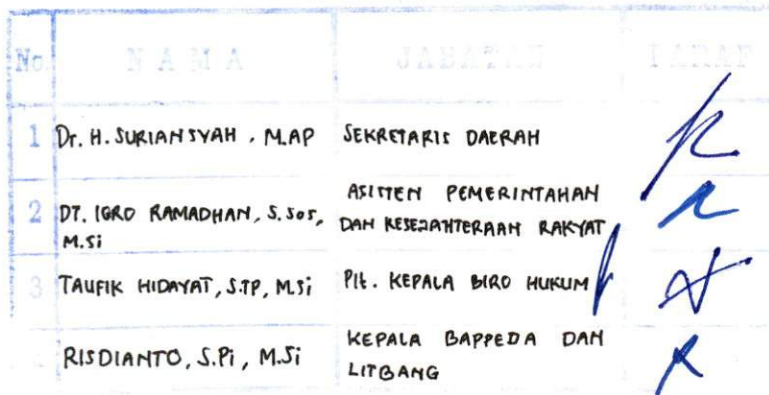 No. NAMA JABATAN PARAF
1 Dr. H. SURIANSYAH . M.AP SEKRETARIS DAERAH
2 DT. IGRO RAMADHAN, S.Sos, M.Si ASISTEN PEMERINTAHAN DAN KESEJAHTERAAN RAKYAT
3 TAUFIK HIDAYAT, S.TP, M.Si Plt. KEPALA BIRO HUKUM
RISDIANTO, S.Pi, M.Si KEPALA BAPPEDA DAN LITBANG